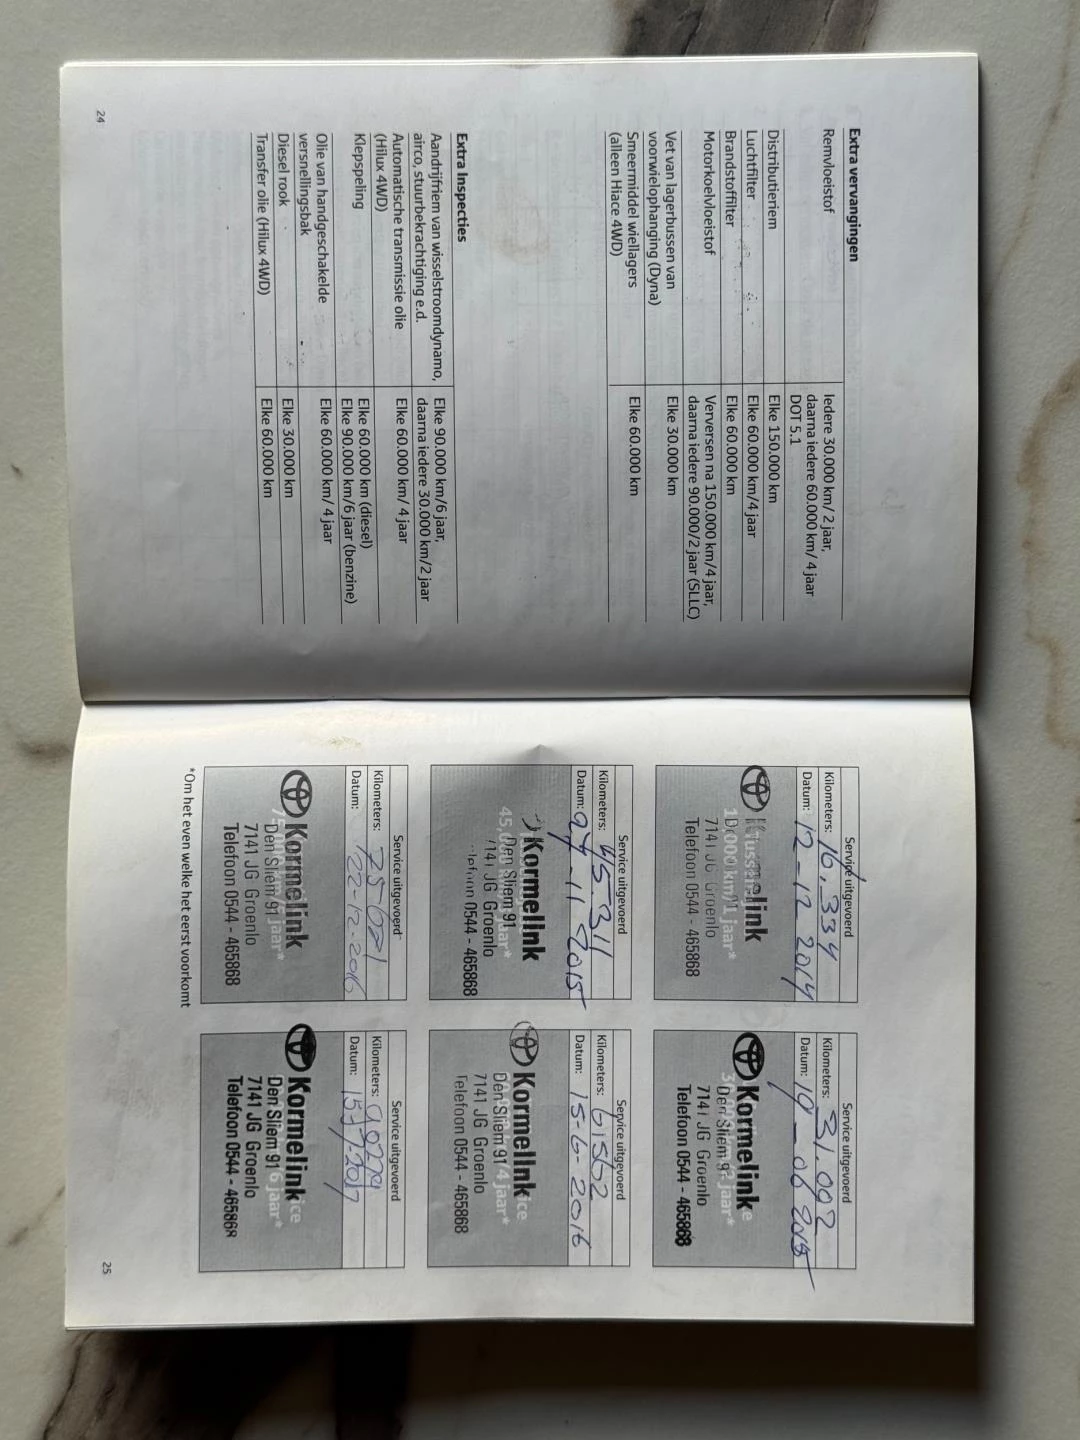 Extra vervangingen
Remvloeistof
Iedere 30.000 km/ 2 jaar,
daarna iedere 60.000 km/ 4 jaar
DOT 5.1
Distributieriem
Elke 150.000 km
Luchtfilter
Elke 60.000 km/4 jaar
Brandstoffilter
Elke 60.000 km
Motorkoelvloeistof
Verversen na 150.000 km/4 jaar,
daarna iedere 90.000/2 jaar (SLLC)
Vet van lagerbussen van
voorwielophanging (Dyna)
Elke 30.000 km
Smeermiddel wiellagers
(alleen Hiace 4WD)
Elke 60.000 km
Extra Inspecties
Aandrijfriem van wisselstroomdynamo,
airco, stuurbekrachtiging e.d.
Elke 90.000 km/6 jaar,
daarna iedere 30.000 km/2 jaar
Automatische transmissie olie
(Hilux 4WD)
Elke 60.000 km/ 4 jaar
Klepspeling
Elke 60.000 km (diesel)
Elke 90.000 km/6 jaar (benzine)
Olie van handgeschakelde
versnellingsbak
Elke 60.000 km/ 4 jaar
Diesel rook
Elke 30.000 km
Transfer olie (Hilux 4WD)
Elke 60.000 km
24
Service uitgevoerd
Kilometers: 16.334
Datum: 12-12 2014
Kormelink
7141 JG Groenlo
Telefoon 0544 - 465868
Service uitgevoerd
Kilometers: 31.002
Datum: 19-06 2015
Kormelink
Den Sliem 91
7141 JG Groenlo
Telefoon 0544 - 465868
Service uitgevoerd
Kilometers: 45311
Datum: 24-11 2015
Kormelink
Den Sliem 91
7141 JG Groenlo
Telefoon 0544 - 465868
Service uitgevoerd
Kilometers: 61552
Datum: 15-6-2016
Kormelink
Den Sliem 91
7141 JG Groenlo
Telefoon 0544 - 465868
Service uitgevoerd
Kilometers: 75071
Datum: 22-12-2016
Kormelink
Den Sliem 91
7141 JG Groenlo
Telefoon 0544 - 465868
Service uitgevoerd
Kilometers:
Datum:
Kormelink
Den Sliem 91
7141 JG Groenlo
Telefoon 0544 - 465868
*Om het even welke het eerst voorkomt
25